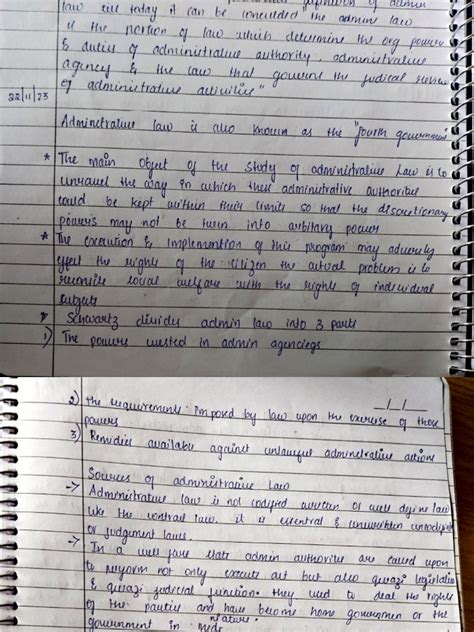 law till today it can be concluded "the admin law
is the portion of law which determine the org powers
& duties of administrative authority, administrative
agency & the law that govern the judical review
of administrative activities"
22/11/23
Adminstrative law is also known as the "fourth government
* The main object of the study of administrative law is to
unravel the way in which these administrative authorities
could be kept within their limits so that the discretionary
powers may not be turn into arbitary power
* The execution & implemention of this program may adversly
effect the rights of the citizen the actual problem is to
reconcile social welfare with the rights of individual
subjects
* Schwartz divides admin law into 3 parts
1) The powers vested in admin agencies
2) the requirements imposed by law upon the exercise of those
powers
3) Remidies available against unlawful adminstrative actions
Sources of administrative law
→ Administrative law is not codified written or well define law
like the contract law. it is essential & unwritten uncodified
or judgement laws.
→ In a well fare state admin authorities are called upon
to perform not only execute act but also quazi legislative
& quazi judicial function. they used to deal the rights
of the parties and have become home governmen or the
government in
nature.